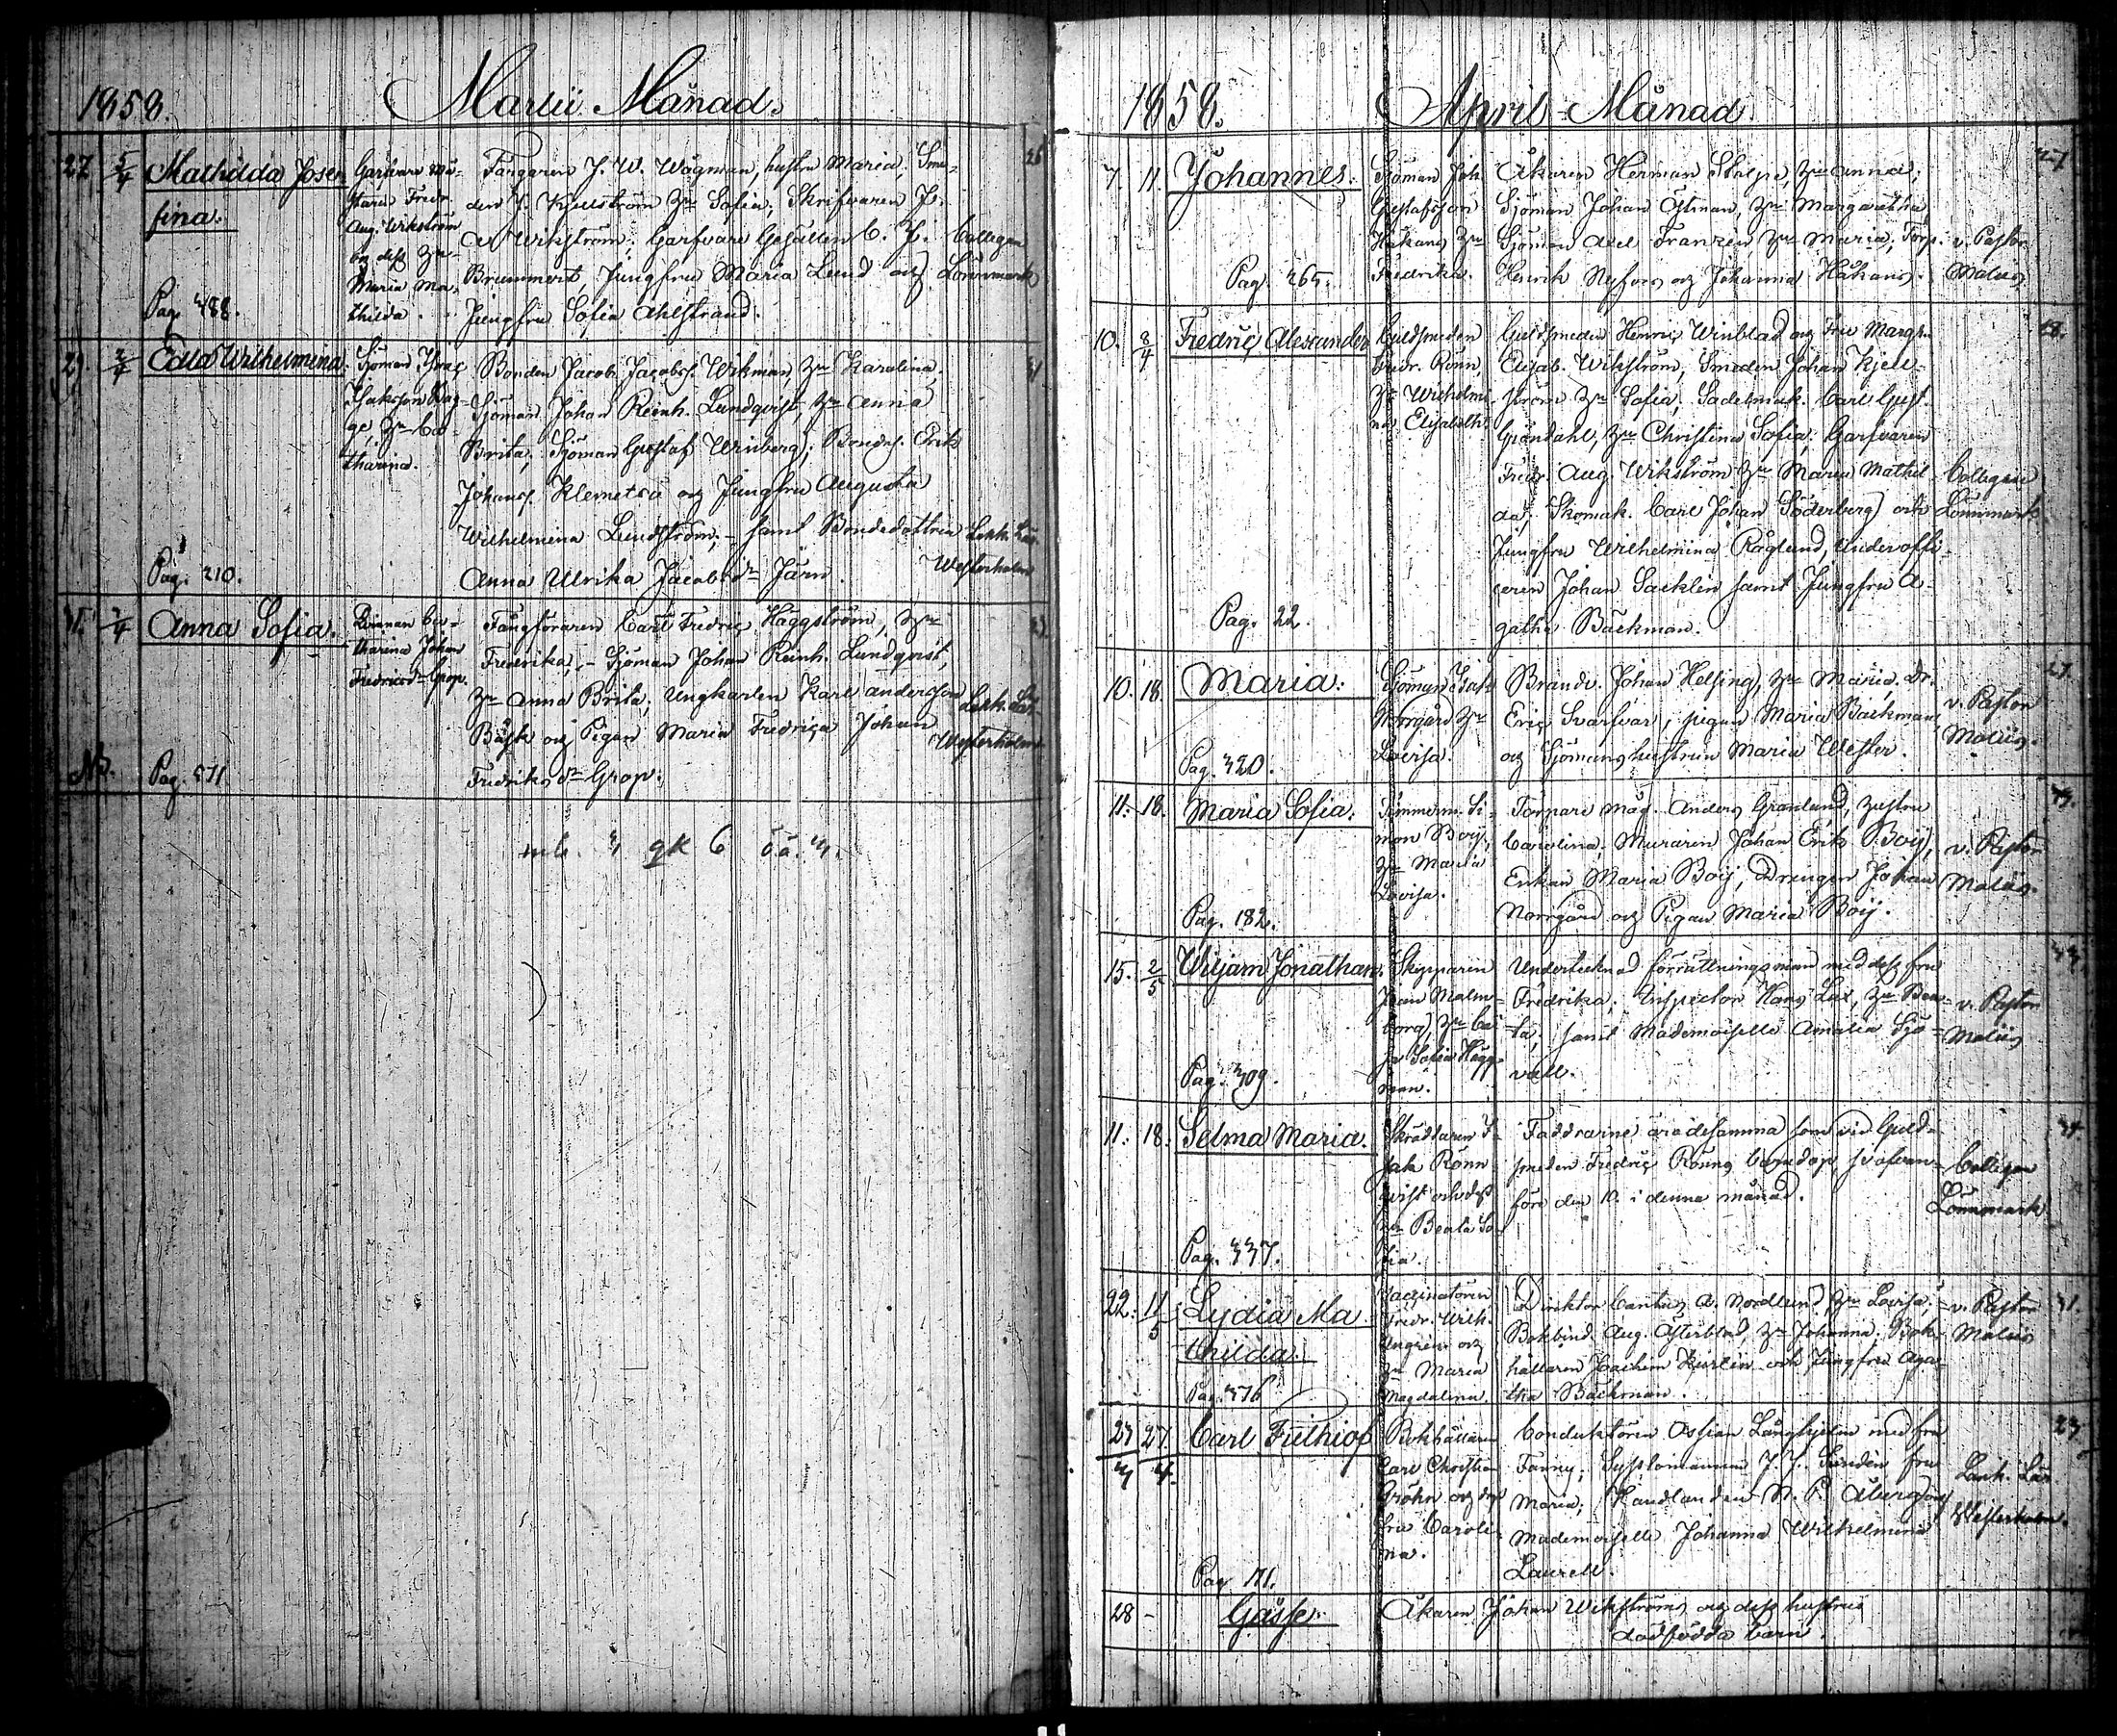 1858. Martii Månad.
27 5/4 Mathilda Jose-
fina.
Pag. 488.
Garfvare Mä-
staren Fredr.
Aug. Wikström
och dess Hu
Maria Ma-
thilda.
Färgaren J. W. Wägman, hustru Maria, Sme-
den J. Kjellström Hu Sofia, Skrifvaren J.
A. Wikström; Garfvare Gesällen C. J.
Brummert, Jungfru Maria Lund och
Jungfru Sofia Ahlstrand.
Collegan
Lönnmark
26
29. 2/4 Edla Wilhelmina.
Pag. 210.
Sjöman Isac
Isaksson
Hu Ca-
tharina.
Bonden Jacob Jacobss. Wikman, Hu Karolina,
Sjöman Johan Reinh. Lundqvist, Hu Anna
Brita, Sjöman Gustaf Winberg; Bondes. Erik
Johanss. Klemets och Jungfru Augusta
Wilhelmina Lundström; samt Bondedottren
Anna Ulrika Jacobsdr Järn.
Westerholm
31. 2/4 Anna Sofia.
Pag. 571.
Qvinnan Ca-
tharina Johan
Fredricsdr Grop.
Fångföraren Carl Fredric Häggström, Hu
Fredrika, Sjöman Johan Reinh. Lundqvist,
Hu Anna Brita, Ungkarlen Karl Andersson
Bäck och Pigan Maria Fredrica Johan
Fredriksdr Grop.
Westerholm
1858. April Månad.
7. 11. Johannes.
Pag. 265.
Sjöman Joh.
Gustafsson
Håkans Hu
Fredrika.
Åkaren Herman Skepe, Hu Anna;
Sjöman Johan Östman, Hu Margaretha,
Sjöman Axel Franzén Hu Maria, Torp.
Henrik Nyfors och Johanna Håkans.
v. Pastor
Malüs
27
10. 8/4 Fredric Alexander
Pag. 22.
Guldsmeden
Fredr. Rönn,
Hu Wilhelmi-
na Elisabeth.
Guldsmeden Henric Winblad och Fru Margr.
Elisab. Wikström, Smeden Johan Kjell-
ström Hu Sofia, Sadelmak. Carl Gust.
Gröndahl, Hu Christina Sofia; Garfvaren
Fredr. Aug. Wikström Hu Maria Mathil-
da; Skomak. Carl Johan Söderberg och
Jungfru Wilhelmina Råglund, Underoffi-
ceren Johan Sacklén samt Jungfru A-
gatha Bäckman.
Collegan
Lönnmark
10. 18. Maria.
Pag. 320.
Sjöman Isak
Norrgård Hu
Lovisa.
Brandv. Johan Helsing, Hu Maria, Dr.
Eric Svarfvar, pigan Maria Bäckman
och Sjömanshustrun Maria Wester.
v. Pastor
Malüs.
27.
11. 18. Maria Sofia.
Pag. 182.
Timmerm. Si-
mon Boij,
Hu Maria
Lovisa.
Torpare måg. Anders Granlund, hustru
Carolina, Muraren Johan Erik Boij,
Enkan Maria Boij, Drengen Johan
Norrgård och Pigan Maria Boij.
v. Pastor
Malüs.
15. 2/5 Wiljam Jonathan.
Pag. 309.
Skepparen
Malm-
borg, Hu Ca-
Sofia Hägg-
man.
Undertecknad förrättningsman med dess fru
Fredrika; Inspector Hans Lax, Hu Bea-
ta; samt Mademoiselle Amalia Sjö-
vall.
v. Pastor
Malüs
33.
11. 18. Selma Maria.
Pag. 337.
Skräddaren I-
sak Rönn-
qvist och dess
Hu Beata So-
fia.
Faddrarne äro desamma som vid Guld-
smeden Fredric Rönns barndop se ofvan-
före den 10. i denna månad.
Collegan
Lönnmark
34.
22. 11/5 Lydia Ma-
thilda.
Pag. 376
Vaccinatören
Fredr. Wilh.
och
Hu Maria
Magdalena.
Direktor Cantus A. Nordlund, Hu Lovisa,
Bokbind. Aug. Österblad, Hu Johanna, Bok-
hållaren Joachim Kurtén och Jungfru Aga-
tha Bäckman.
v. Pastor
Malüs
31.
23/3 27/4. Carl Frithiof
Pag. 171.
Bokhållaren
Carl Christian
Gröhn och dess
fru Caroli-
na.
Conduktören Ossian Långhjelm med fru
Fanny; Sysslomannen J. J. fru
Maria; Handlanden N. P. Åberg och
Mademoiselle Johanna Wilhelmina
Laurell.
Westerholm.
23
28 - Gosse.
Åkaren Johan Wikströms och dess hustrus
dödfödda barn.